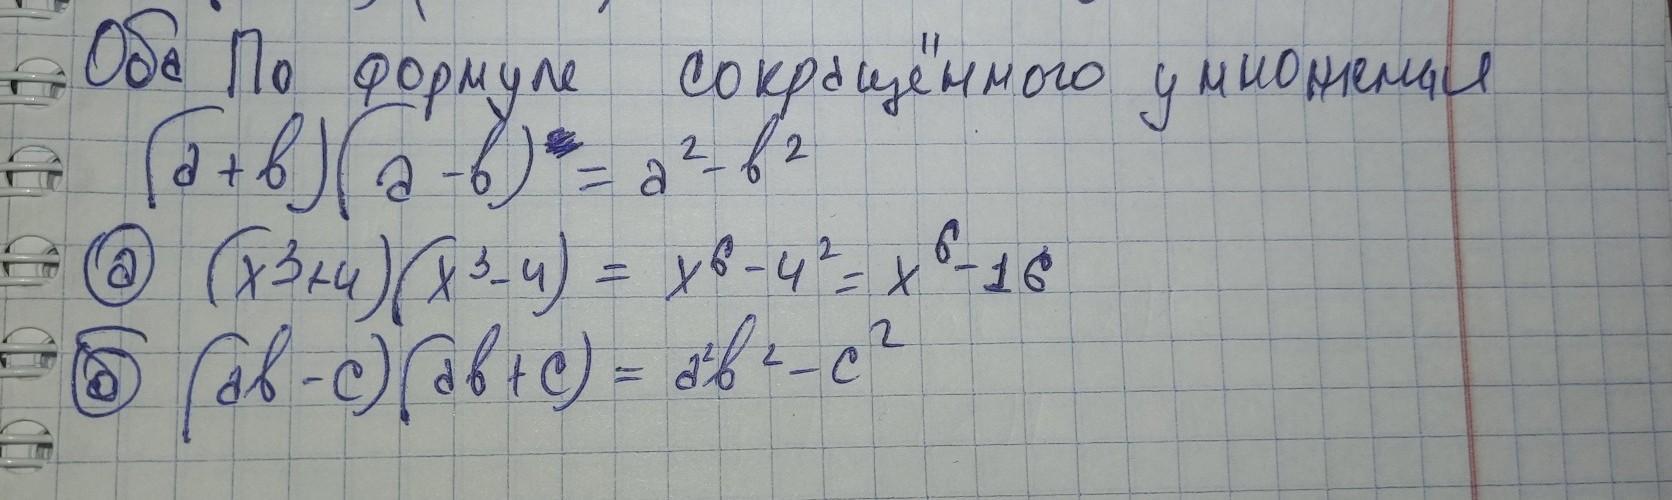 Оба По формуле сокращённого умножения
(a+b)(a-b) = a²-b²
а (x³+4)(x³-4) = x⁶-4² = x⁶-16
б (ab-c)(ab+c) = a²b²-c²